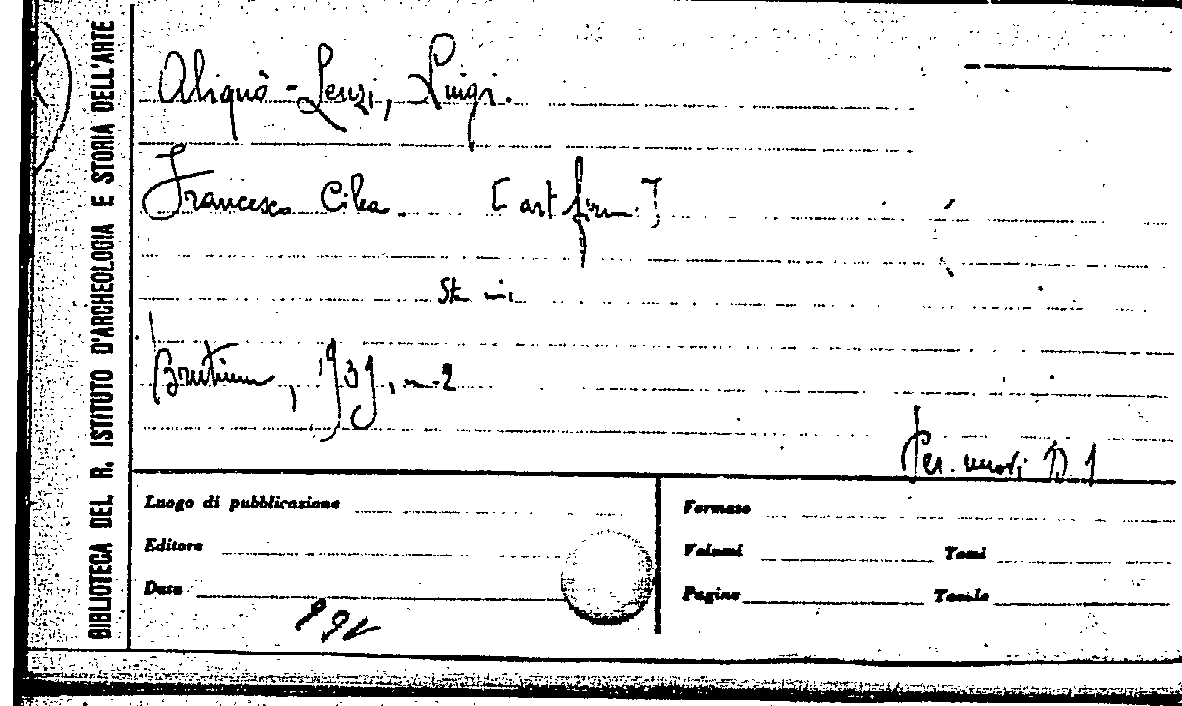 BIBLIOTECA DEL R. ISTITUTO D'ARCHEOLOGIA E STORIA DELL'ARTE
Aliquò-Lenzi, Luigi.
Francesco Cilea. [art. firm.]
Sta in:
Brutium, 1939, n. 2
Per. nuovi D. 1
Luogo di pubblicazione
Editore
Data
Formato
Volumi Tomi
Pagine Tavole